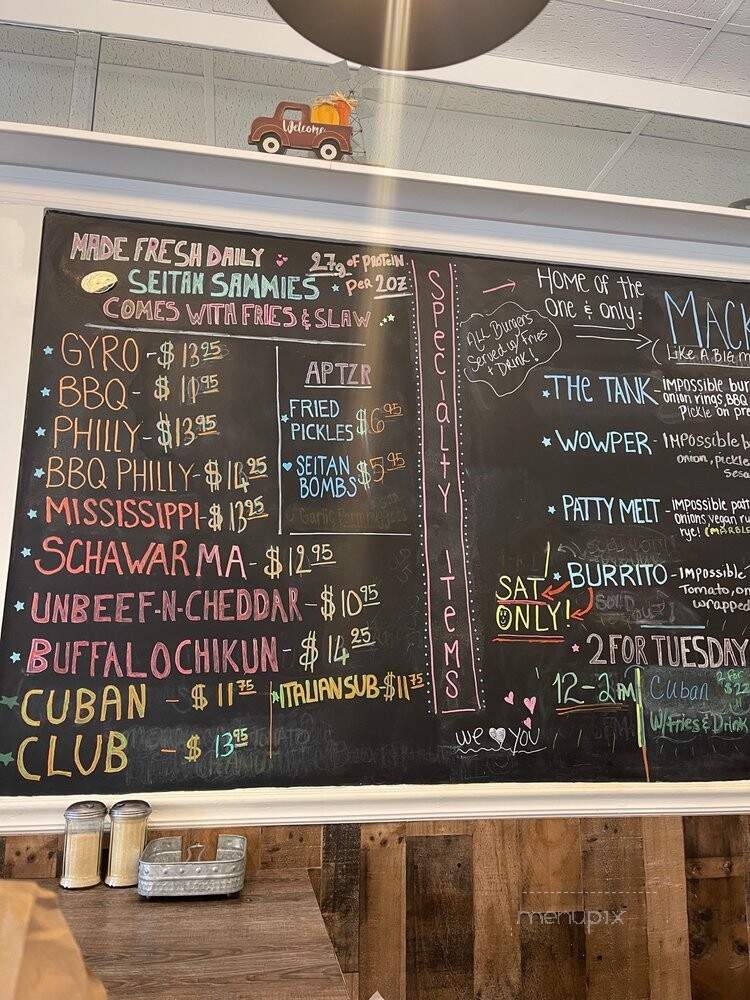 Welcome
MADE FRESH DAILY
27g OF PROTEIN
PER 2OZ
SEITAN SAMMIES
COMES WITH FRIES & SLAW
GYRO - $13 95
BBQ - $10 95
PHILLY - $13 95
BBQ PHILLY - $14 25
MISSISSIPPI - $13 25
SCHAWARMA - $12 95
UNBEEF-N-CHEDDAR - $10 95
BUFFALO CHIKUN - $14 25
CUBAN - $11 75
ITALIAN SUB - $11 75
CLUB - $13 95
APTZR
FRIED
PICKLES $6 95
SEITAN
BOMBS $5 95
SPeciaLTY ITeMS
Home of the
one & only:
MACK
(Like A Big m
ALL Burgers
Served w/ Fries
& Drink!
THE TANK - impossible bur
onion rings, BBQ
Pickle on pre
WOWPER - Impossible b
onion, pickle
Sesa
PATTY MELT - impossible patt
onions, vegan ru
rye! (MARBLE
SAT
ONLY!
BURRITO - Impossible
Tomato, on
wrapped
SOLD OUT!
2 FOR TUESDAY
12-2PM
Cuban
2 For
W/Fries & Drink
we YOU
menupix